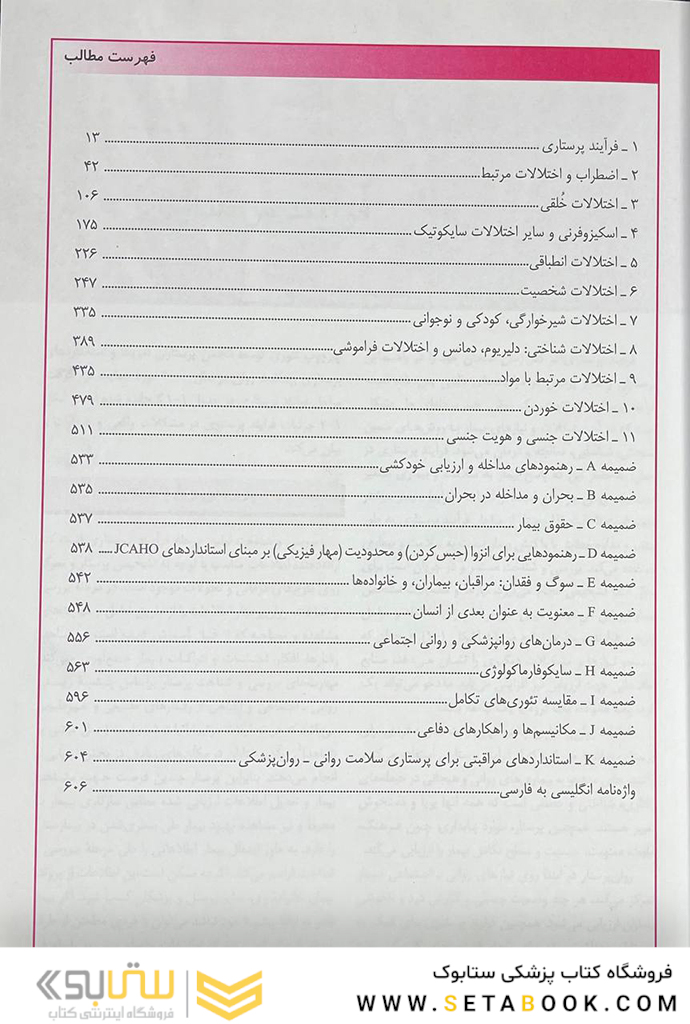 فهرست مطالب
۱ ـ فرآیند پرستاری ........ ۱۳
۲ ـ اضطراب و اختلالات مرتبط ........ ۴۲
۳ ـ اختلالات خُلقی ........ ۱۰۶
۴ ـ اسکیزوفرنی و سایر اختلالات سایکوتیک ........ ۱۷۵
۵ ـ اختلالات انطباقی ........ ۲۲۶
۶ ـ اختلالات شخصیت ........ ۲۴۷
۷ ـ اختلالات شیرخوارگی، کودکی و نوجوانی ........ ۳۳۵
۸ ـ اختلالات شناختی: دلیریوم، دمانس و اختلالات فراموشی ........ ۳۸۹
۹ ـ اختلالات مرتبط با مواد ........ ۴۳۵
۱۰ ـ اختلالات خوردن ........ ۴۷۹
۱۱ ـ اختلالات جنسی و هویت جنسی ........ ۵۱۱
ضمیمه A ـ رهنمودهای مداخله و ارزیابی خودکشی ........ ۵۳۳
ضمیمه B ـ بحران و مداخله در بحران ........ ۵۳۵
ضمیمه C ـ حقوق بیمار ........ ۵۳۷
ضمیمه D ـ رهنمودهایی برای انزوا (حبس‌کردن) و محدودیت (مهار فیزیکی) بر مبنای استانداردهای JCAHO ..... ۵۳۸
ضمیمه E ـ سوگ و فقدان: مراقبان، بیماران، و خانواده‌ها ........ ۵۴۲
ضمیمه F ـ معنویت به عنوان بعدی از انسان ........ ۵۴۸
ضمیمه G ـ درمان‌های روانپزشکی و روانی اجتماعی ........ ۵۵۶
ضمیمه H ـ سایکوفارماکولوژی ........ ۵۶۳
ضمیمه I ـ مقایسه تئوری‌های تکامل ........ ۵۹۶
ضمیمه J ـ مکانیسم‌ها و راهکارهای دفاعی ........ ۶۰۱
ضمیمه K ـ استانداردهای مراقبتی برای پرستاری سلامت روانی ـ روان‌پزشکی ........ ۶۰۴
واژه‌نامه انگلیسی به فارسی ........ ۶۰۶
فروشگاه کتاب پزشکی ستابوک
WWW.SETABOOK.COM
ستابوک
فروشگاه اینترنتی کتاب